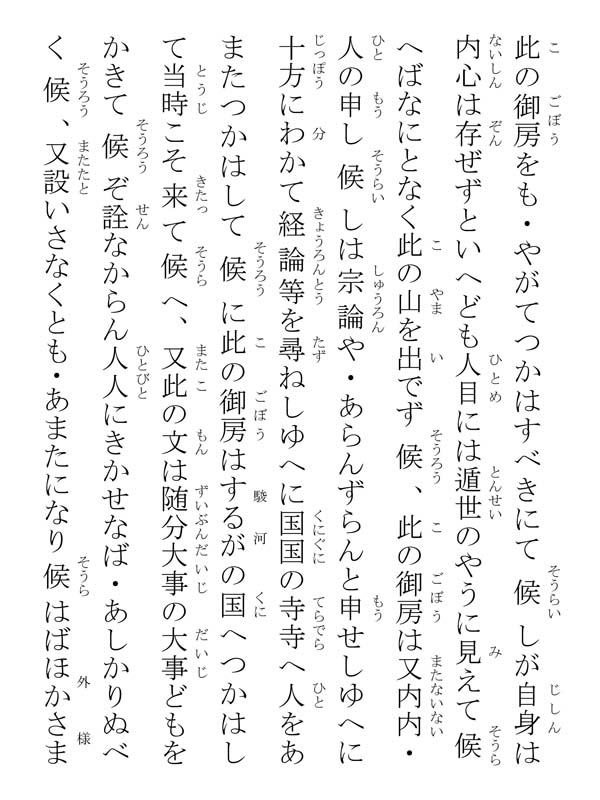 此の御房をも・やがてつかはすべきにて候しが自身は
内心は存ぜずといへども人目には遁世のやうに見えて候
へばなにとなく此の山を出でず候、此の御房は又内内・
人の申し候しは宗論や・あらんずらんと申せしゆへに
十方にわかて経論等を尋ねしゆへに国国の寺寺へ人をあ
またつかはして候に此の御房はするがの国へつかはし
て当時こそ来て候へ、又此の文は随分大事の大事どもを
かきて候ぞ詮なからん人人にきかせなば・あしかりぬべ
く候、又設いさなくとも・あまたになり候はばほかさま